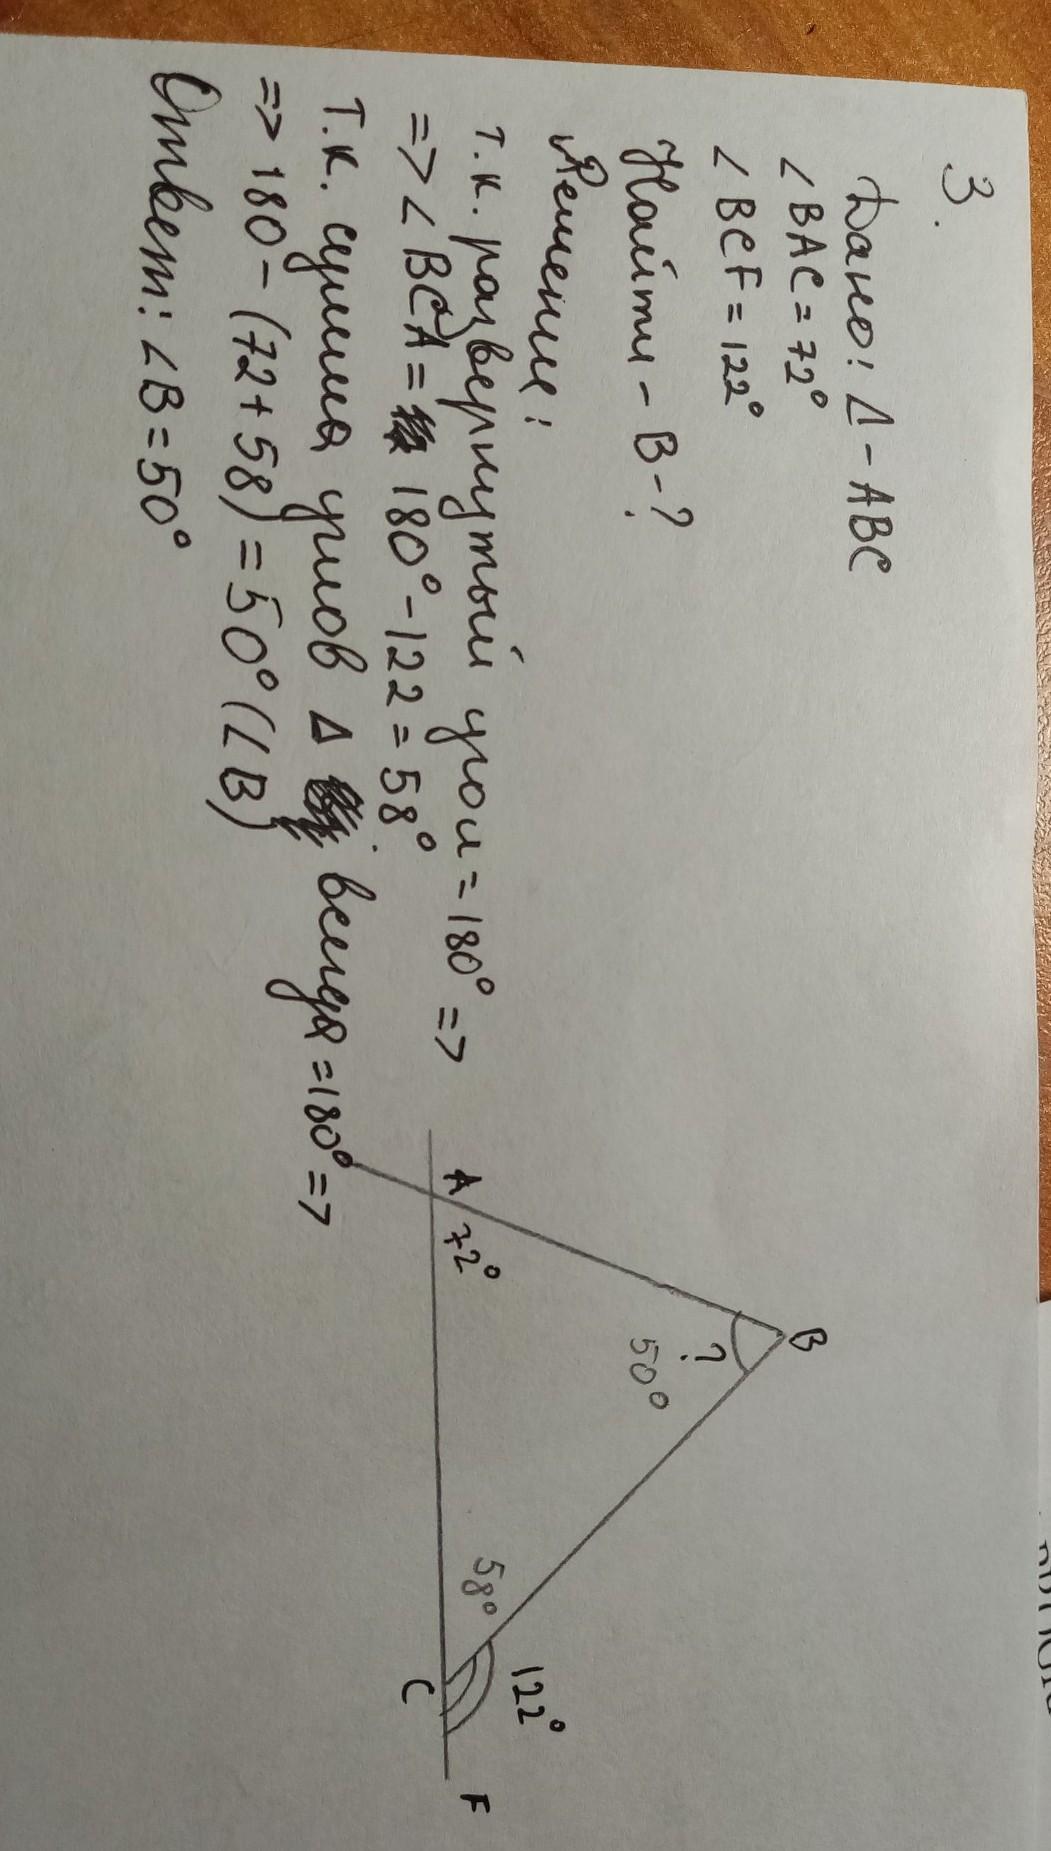 3.
Дано: Δ - ABC
∠BAC = 72°
∠BCF = 122°
Найти - B - ?
Решение:
т.к. развернутый угол = 180° =>
=> ∠BCA = 180° - 122 = 58°
т.к. сумма углов Δ всегда = 180° =>
=> 180 - (72 + 58) = 50° (∠B)
Ответ: ∠B = 50°
B
?
50°
A
72°
58°
122°
C
F